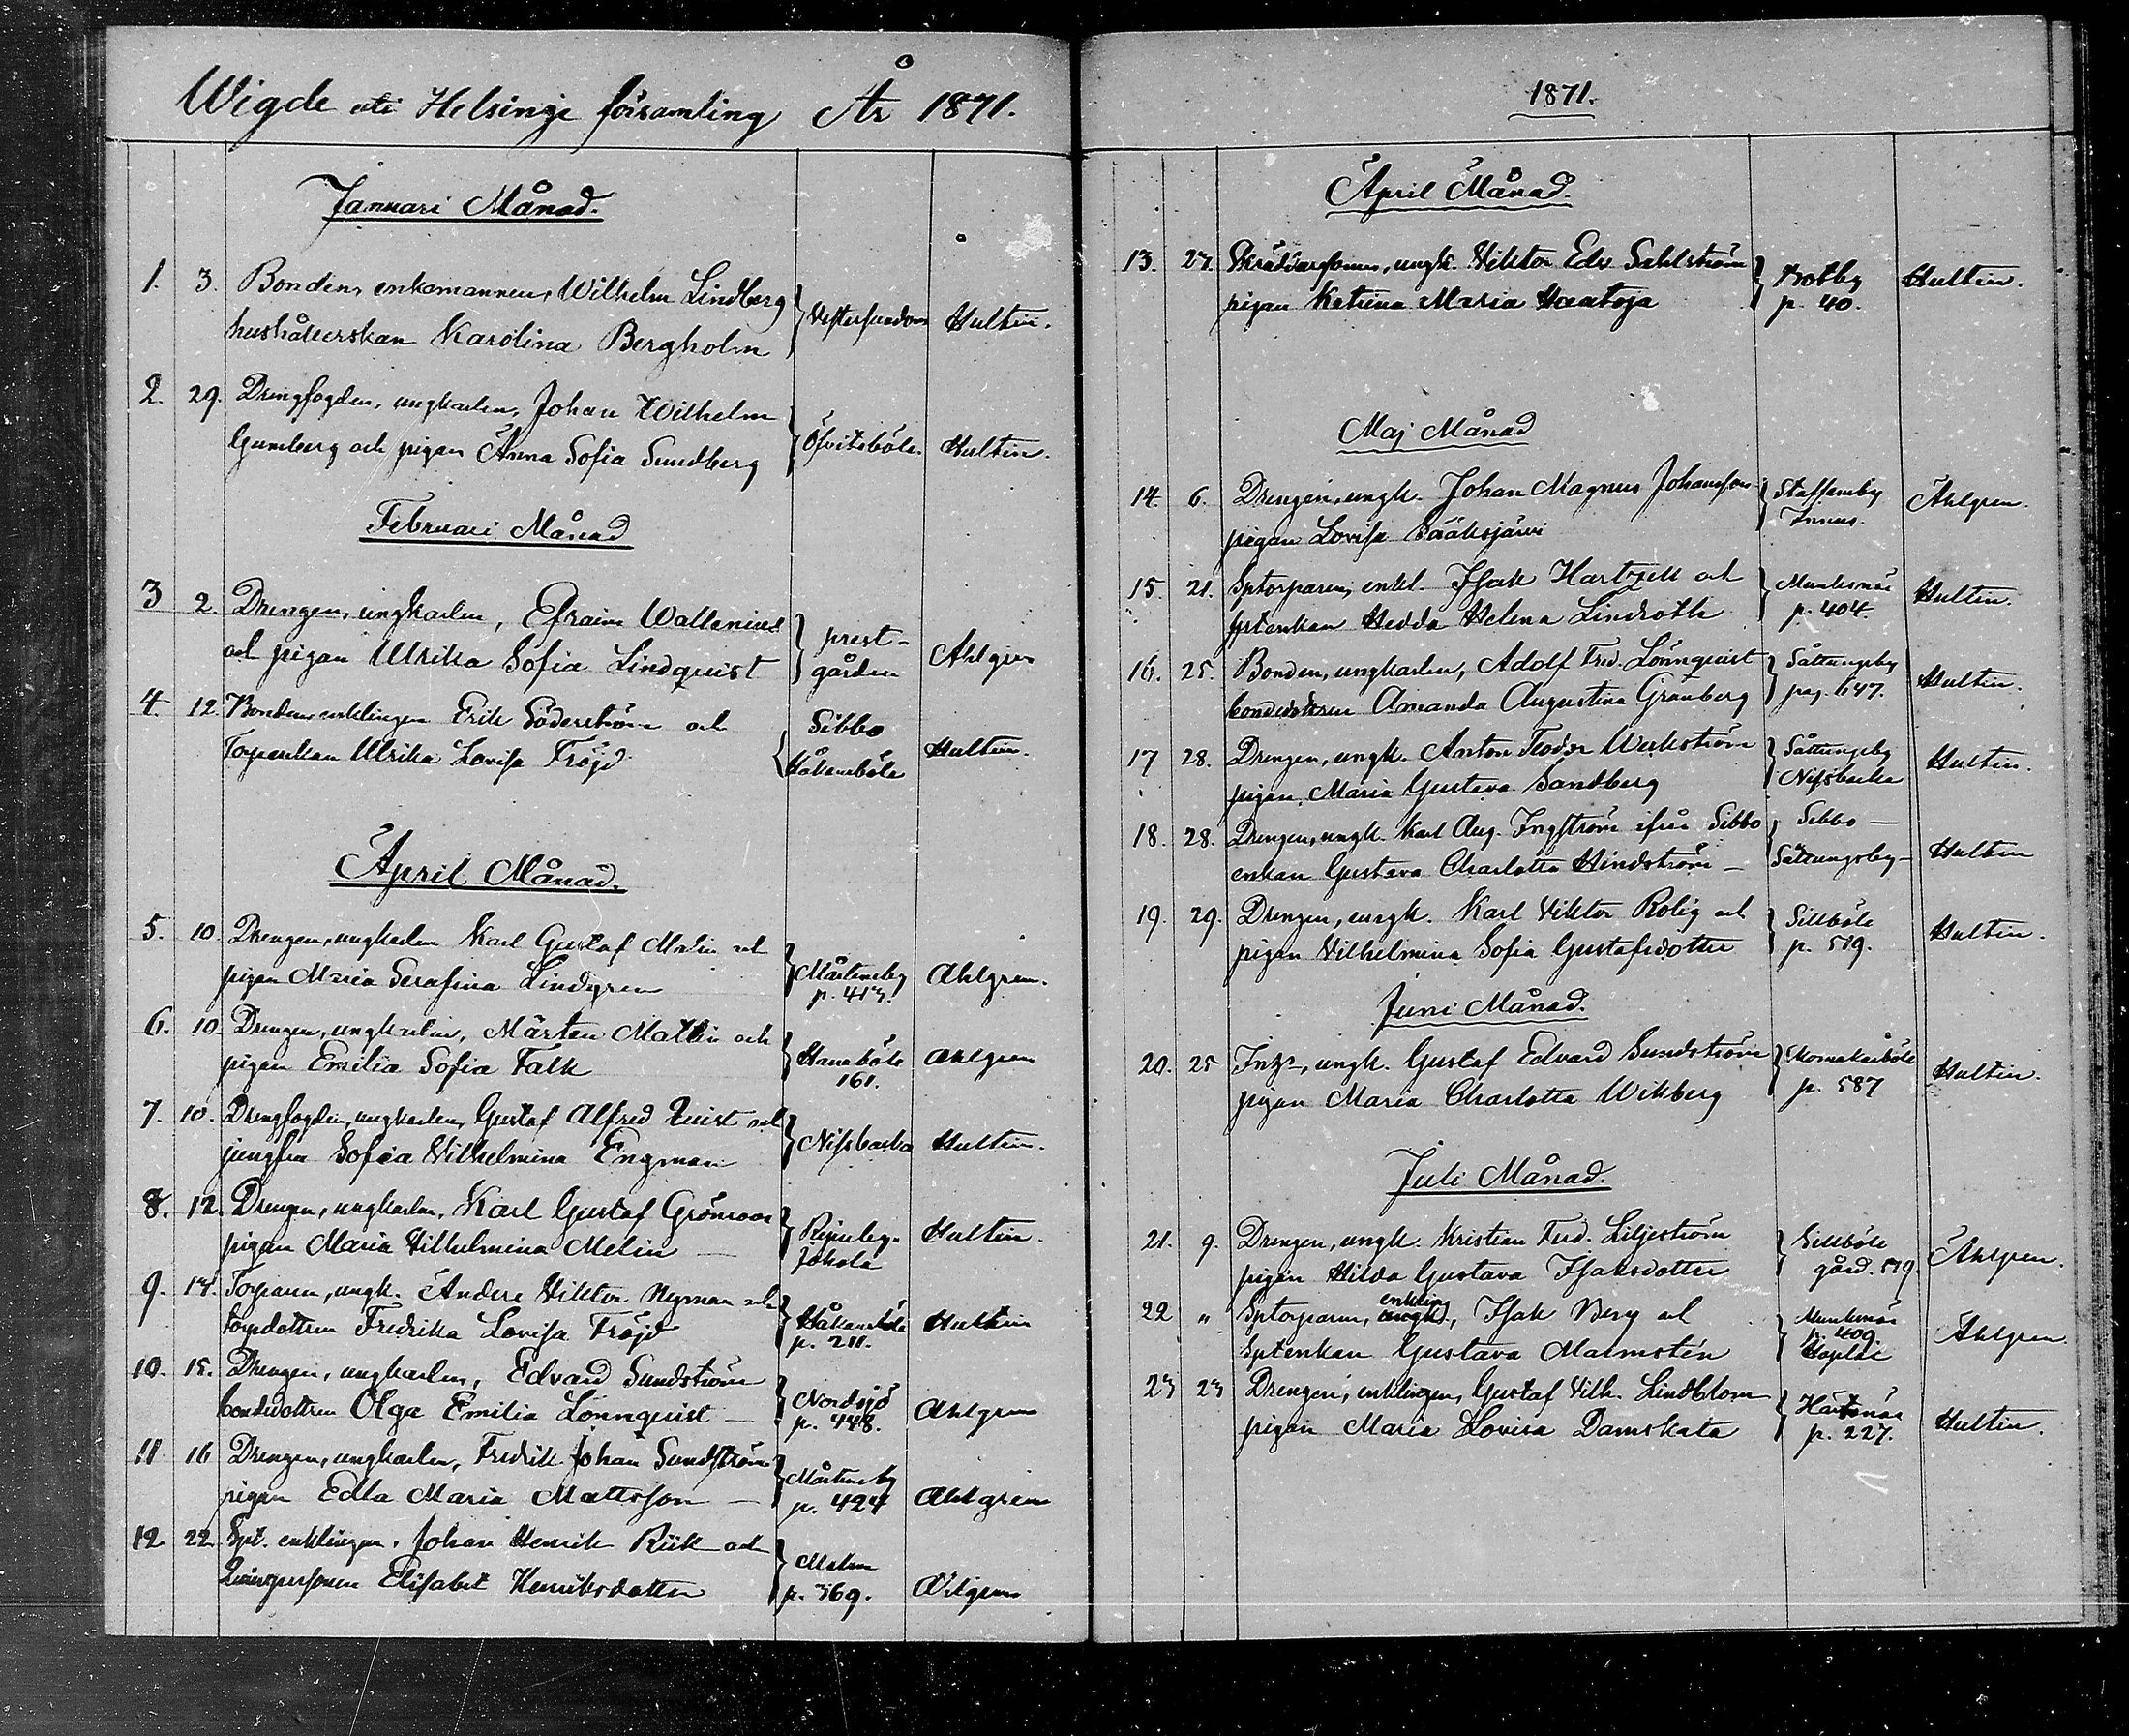 Wigde uti Helsinge församling År 1871.
Januari Månad.
1. 3. Bonden, enkomannen, Wilhelm Lindberg
hushållerskan Karolina Bergholm } Vestersundom Hultin.
2. 29. Drengfogden, ungkarlen, Johan Wilhelm
Gumberg och pigan Anna Sofia Sundberg } Hultin.
Februari Månad
3 2. Drengen, ungkarlen, Efraim Wallenius
och pigan Ulrika Sofia Lindquist } prest-
gården Ahlgren
4. 12. Bonden enklingen Erik Söderström och
Torparenkan Ulrika Lovisa Fröjd { Sibbo
Håkansböle Hultin.
April Månad.
5. 10. Drengen, ungkarlen Karl Gustaf Malin och
pigan Maria Serafina Lindgren } Mårtensby
p. 413. Ahlgren.
6. 10. Drengen, ungkarlen, Mårten Mattin och
pigan Emilia Sofia Falk } Hanaböle
161. Ahlgren
7. 10. Drengfogden, ungkarlen, Gustaf Alfred Quist och
jungfru Sofia Vilhelmina Engman } Nissbacka Hultin.
8. 12. Drengen, ungkarlen, Karl Gustaf Grönroos
pigan Maria Vilhelmina Melin — } Rejpeby
Jokela Hultin.
9. 14. Torparen, ungk. Anders Viktor Nyman och
torpdottren Fredrika Lovisa Fröjd } Håkansböle
p. 211. Hultin
10. 15. Drengen, ungkarlen, Edvard Sundström
bondedottren Olga Emilia Lönnquist — } Nordsjö
p. 448. Ahlgren
11 16 Drengen, ungkarlen, Fredrik Johan Sundström
pigan Edla Maria Mattsson — } Mårtensby
p. 424 Ahlgren
12. 22. Spt. enklingen, Johan Henrik Riik och
Qvinspersonen Elisabet Henriksdotter } Malm
p. 369. Ahlgren
1871.
April Månad.
13. 23. Skräddaresonen, ungk. Viktor Edv. Sahlström
pigan Katrina Maria Haataja } Botby
p. 40. Hultin.
Maj Månad
14. 6. Drengen, ungk. Johan Magnus Johansson
pigan Lovisa Sääksjärvi } Staffansby
Ahlgren.
15. 21. Sptorparen, enkl. Isak Hartzell och
sptenkan Hedda Helena Lindroth } Munksnäs
p. 404. Hultin.
16. 25. Bonden, ungkarlen, Adolf Fred. Lönnquist
bondedottren Amanda Augustina Granberg } Sättungsby
pag. 647. Hultin.
17 28. Drengen, ungk. Anton Teodor Weckström
pigan, Maria Gustava Sandberg } Sättungsby
Nissbacka Hultin.
18. 28. Drengen, ungk. Karl Aug. Ingström ifrån Sibbo
enkan Gustava Charlotta Hindström — } Sibbo —
Sättungsby — Hultin
19. 29. Drengen, ungk. Karl Viktor Rolig och
pigan Vilhelmina Sofia Gustafsdotter } Sillböle
p. 519. Hultin.
Juni Månad.
20. 25 Inhs, ungk. Gustaf Edvard Sundström
pigan Maria Charlotta Wikberg } Skomakarböle
p. 587 Hultin.
Juli Månad.
21. 9. Drengen, ungk. Kristian Ferd. Liljeström
pigan Hilda Gustava Isaksdotter } Sillböle
gård. 519 Ahlgren.
enkling
22 " Sptorparen, ungk, Isak Berg och
Sptenkan Gustava Malmstén } Munksnäs
p. 409.
Hoplax Ahlgren
23 23 Drengen, enklingen, Gustaf Vilh. Lindblom
pigan Maria Lovisa Damskata } Hertonäs
p. 227. Hultin.